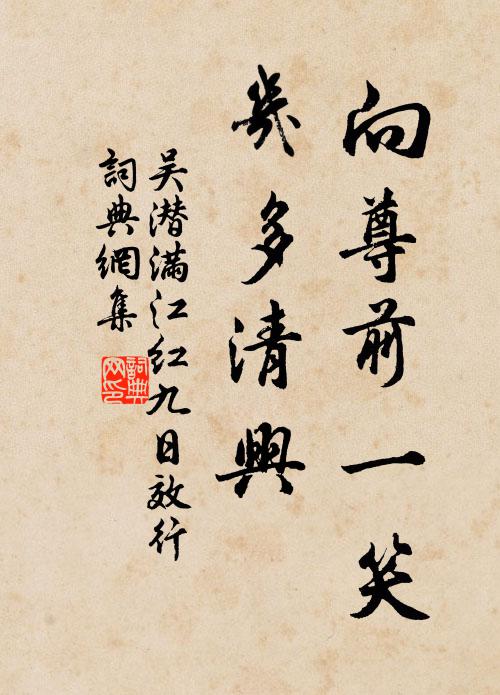 向尊前一笑
幾多清興
吴潜满江红九日效行
詞典網集
詞典网印